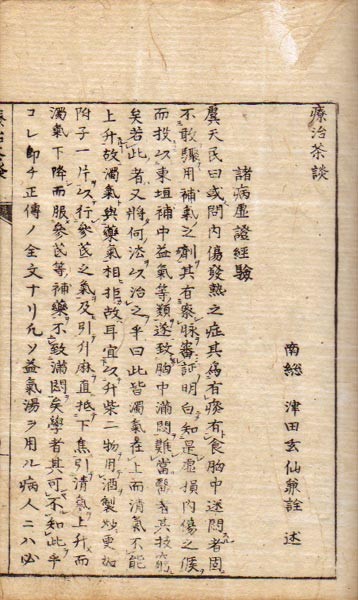 療治茶談
南総 津田玄仙兼詮 述
諸病虚證經驗
虞天民曰或問內傷發熱之症其有痰有食胸中迷悶者固
不敢驟用補氣之劑其有察脉審証明白知是虛損內傷之候
而投以東垣補中益氣等類遂致胸中滿悶難當醫者其技窮
矣若此者又將何法以治之乎曰此皆濁氣在上而清氣不能
上升故濁氣與藥氣相拒故耳宜以升柴二物用酒製炒更加
附子一片以行參芪之氣及引升麻直抵下焦引清氣上升而
濁氣下降而服參芪等補藥不致滿悶矣學者其可不知此乎
コレ即チ正傳ノ全文ナリ凡ソ益氣湯ヲ用ル病人ニハ必